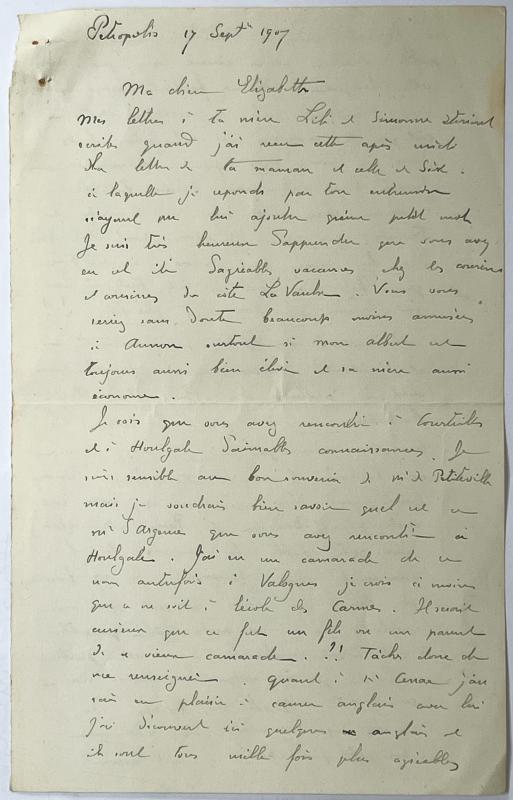 Petropolis 17 Septb 1907
Ma chère Elizabeth
Mes lettres à ta mère Lili et Simonne étaient
écrites quand j'ai reçu cette après midi
la lettre de ta maman et celle de
à laquelle je reponds par ton entremise
n'ayant pu lui ajouter qu'un petit mot
Je suis très heureux d'apprendre que vous avez
eu cet été d'agréables vacances chez les cousins
et cousines du côté La Vaulx. Vous vous
seriez sans doute beaucoup moins amusées
à surtout si mon albert est
toujours aussi bien élevé et sa mère aussi
économe.
Je vois que vous avez rencontré à Courteilles
et à Houlgate d'aimables connaissances. Je
suis sensible au bon souvenir de Mr de Petiteville
mais je voudrais bien savoir quel est ce
Mr d'Argence que vous avez rencontré à
Houlgate. J'ai eu un camarade de ce
nom autrefois à Valognes je crois à moins
que ce ne soit à l'école des Carmes. Il serait
curieux que ce fut un fils ou un parent
de ce vieux camarade. ?! Tâchez donc de
me renseigner. Quant à j'au
rais eu plaisir à causer anglais avec lui
j'ai découvert ici quelques anglais et
ils sont tous mille fois plus agréables